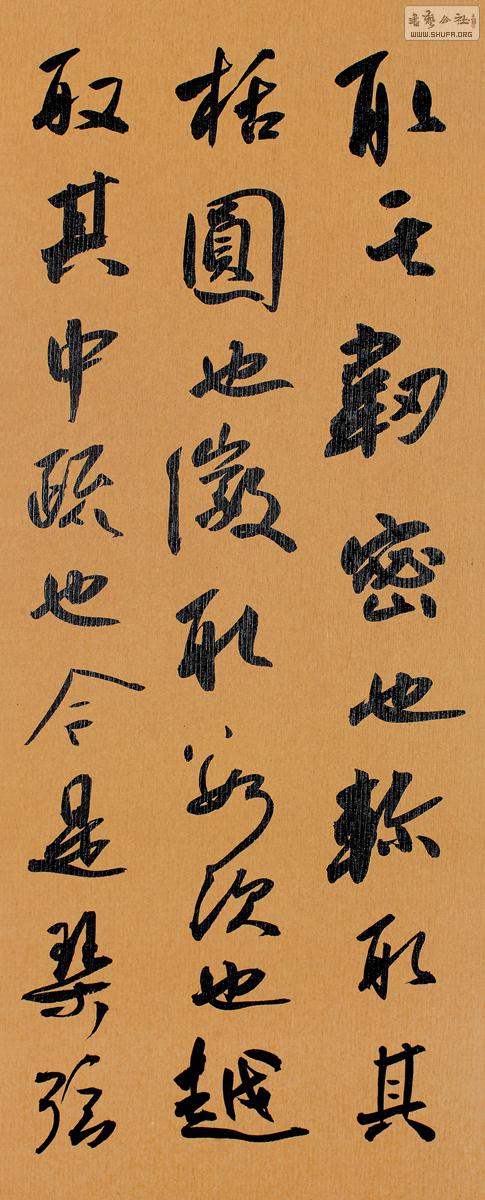 取其韌密也軫取其
栝圓也徽取數次也越
取其中疏也今是琴弦
書藝公社
WWW.SHUFA.ORG